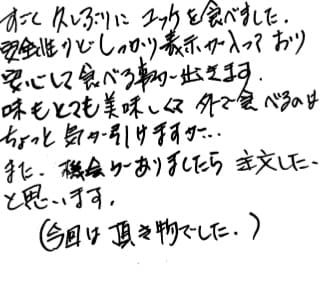 すごく久しぶりにユッケを食べました.
安全性などしっかり表示が入っており
安心して食べる事が出来ます.
味もとても美味しくて外で食べるのは
ちょっと気が引けますが…
また.機会がありましたら注文したい
と思います.
(今回は頂き物でした.)